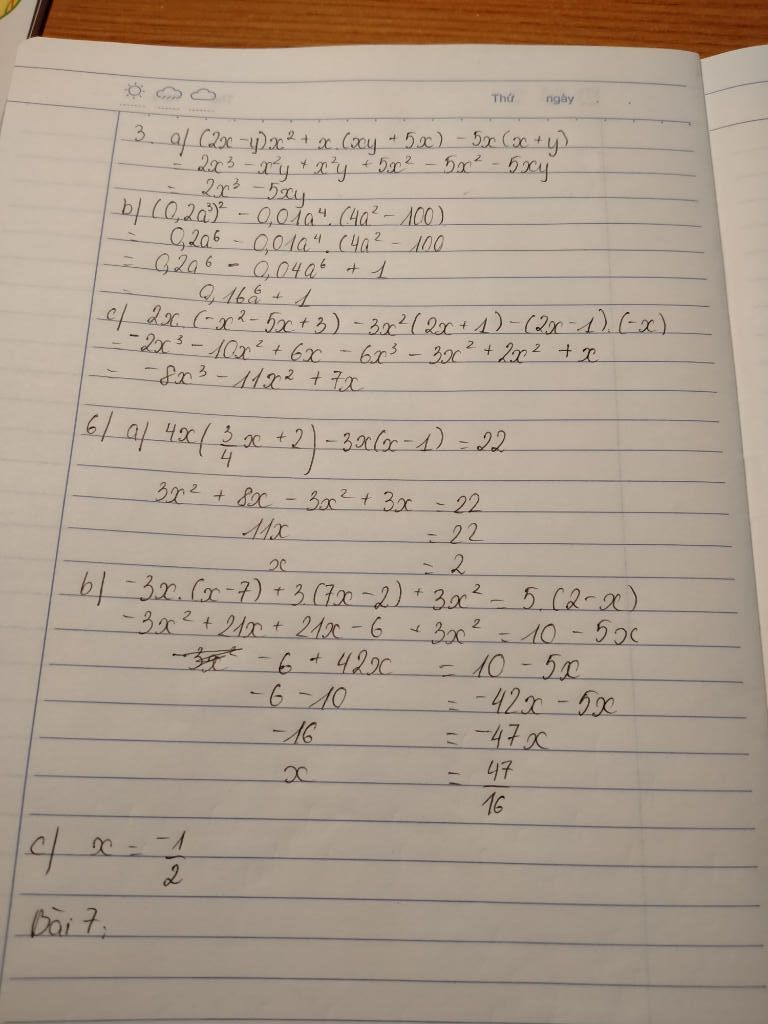 Thứ ngày
3. a/ (2x - y)x² + x.(xy + 5x) - 5x(x + y)
= 2x³ - x²y + x²y + 5x² - 5x² - 5xy
= 2x³ - 5xy
b/ (0,2a³)² - 0,01a⁴.(4a² - 100)
= 0,2a⁶ - 0,01a⁴.(4a² - 100
= 0,2a⁶ - 0,04a⁶ + 1
= 0,16a⁶ + 1
c/ 2x.(-x² - 5x + 3) - 3x²(2x + 1) - (2x - 1).(-x)
= -2x³ - 10x² + 6x - 6x³ - 3x² + 2x² + x
= -8x³ - 11x² + 7x
6/ a/ 4x(3/4 x + 2) - 3x(x - 1) = 22
3x² + 8x - 3x² + 3x = 22
11x = 22
x = 2
b/ -3x.(x - 7) + 3.(7x - 2) + 3x² = 5.(2 - x)
-3x² + 21x + 21x - 6 + 3x² = 10 - 5x
-6 + 42x = 10 - 5x
-6 - 10 = -42x - 5x
-16 = -47x
x = 47/16
c/ x = -1/2
Bài 7: